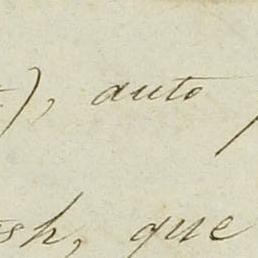 ), auto
sh, que